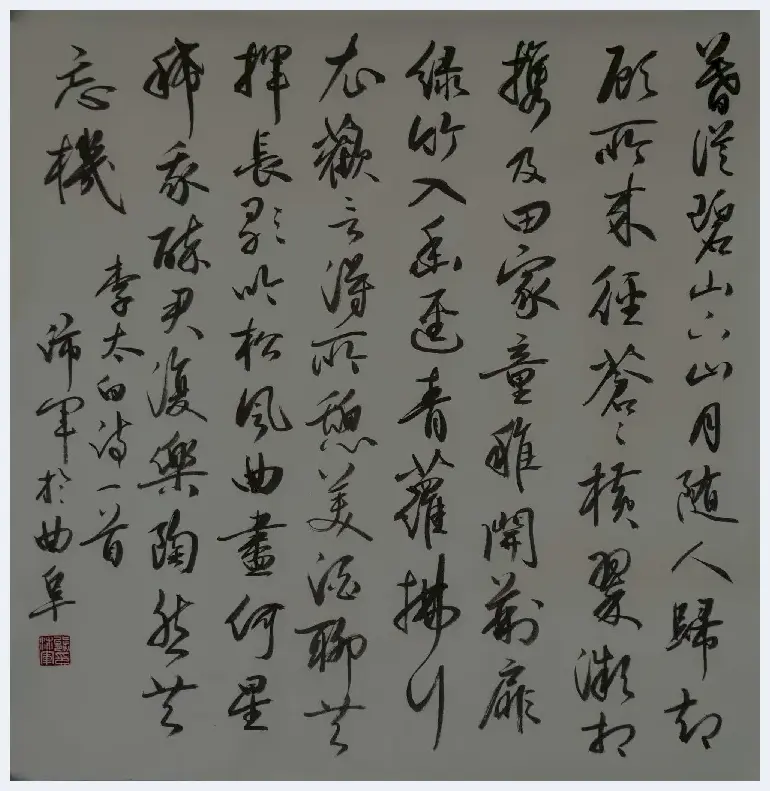 暮從碧山下山月随人歸却
顾所来徑蒼々横翠微相
携及田家童稚開荆扉
绿竹入幽逕青蘿拂行
衣歡言得所憩美酒聊共
揮長歌吟松風曲盡何星
稀我醉君復樂陶然共
忘機
李太白诗一首
軍於曲阜